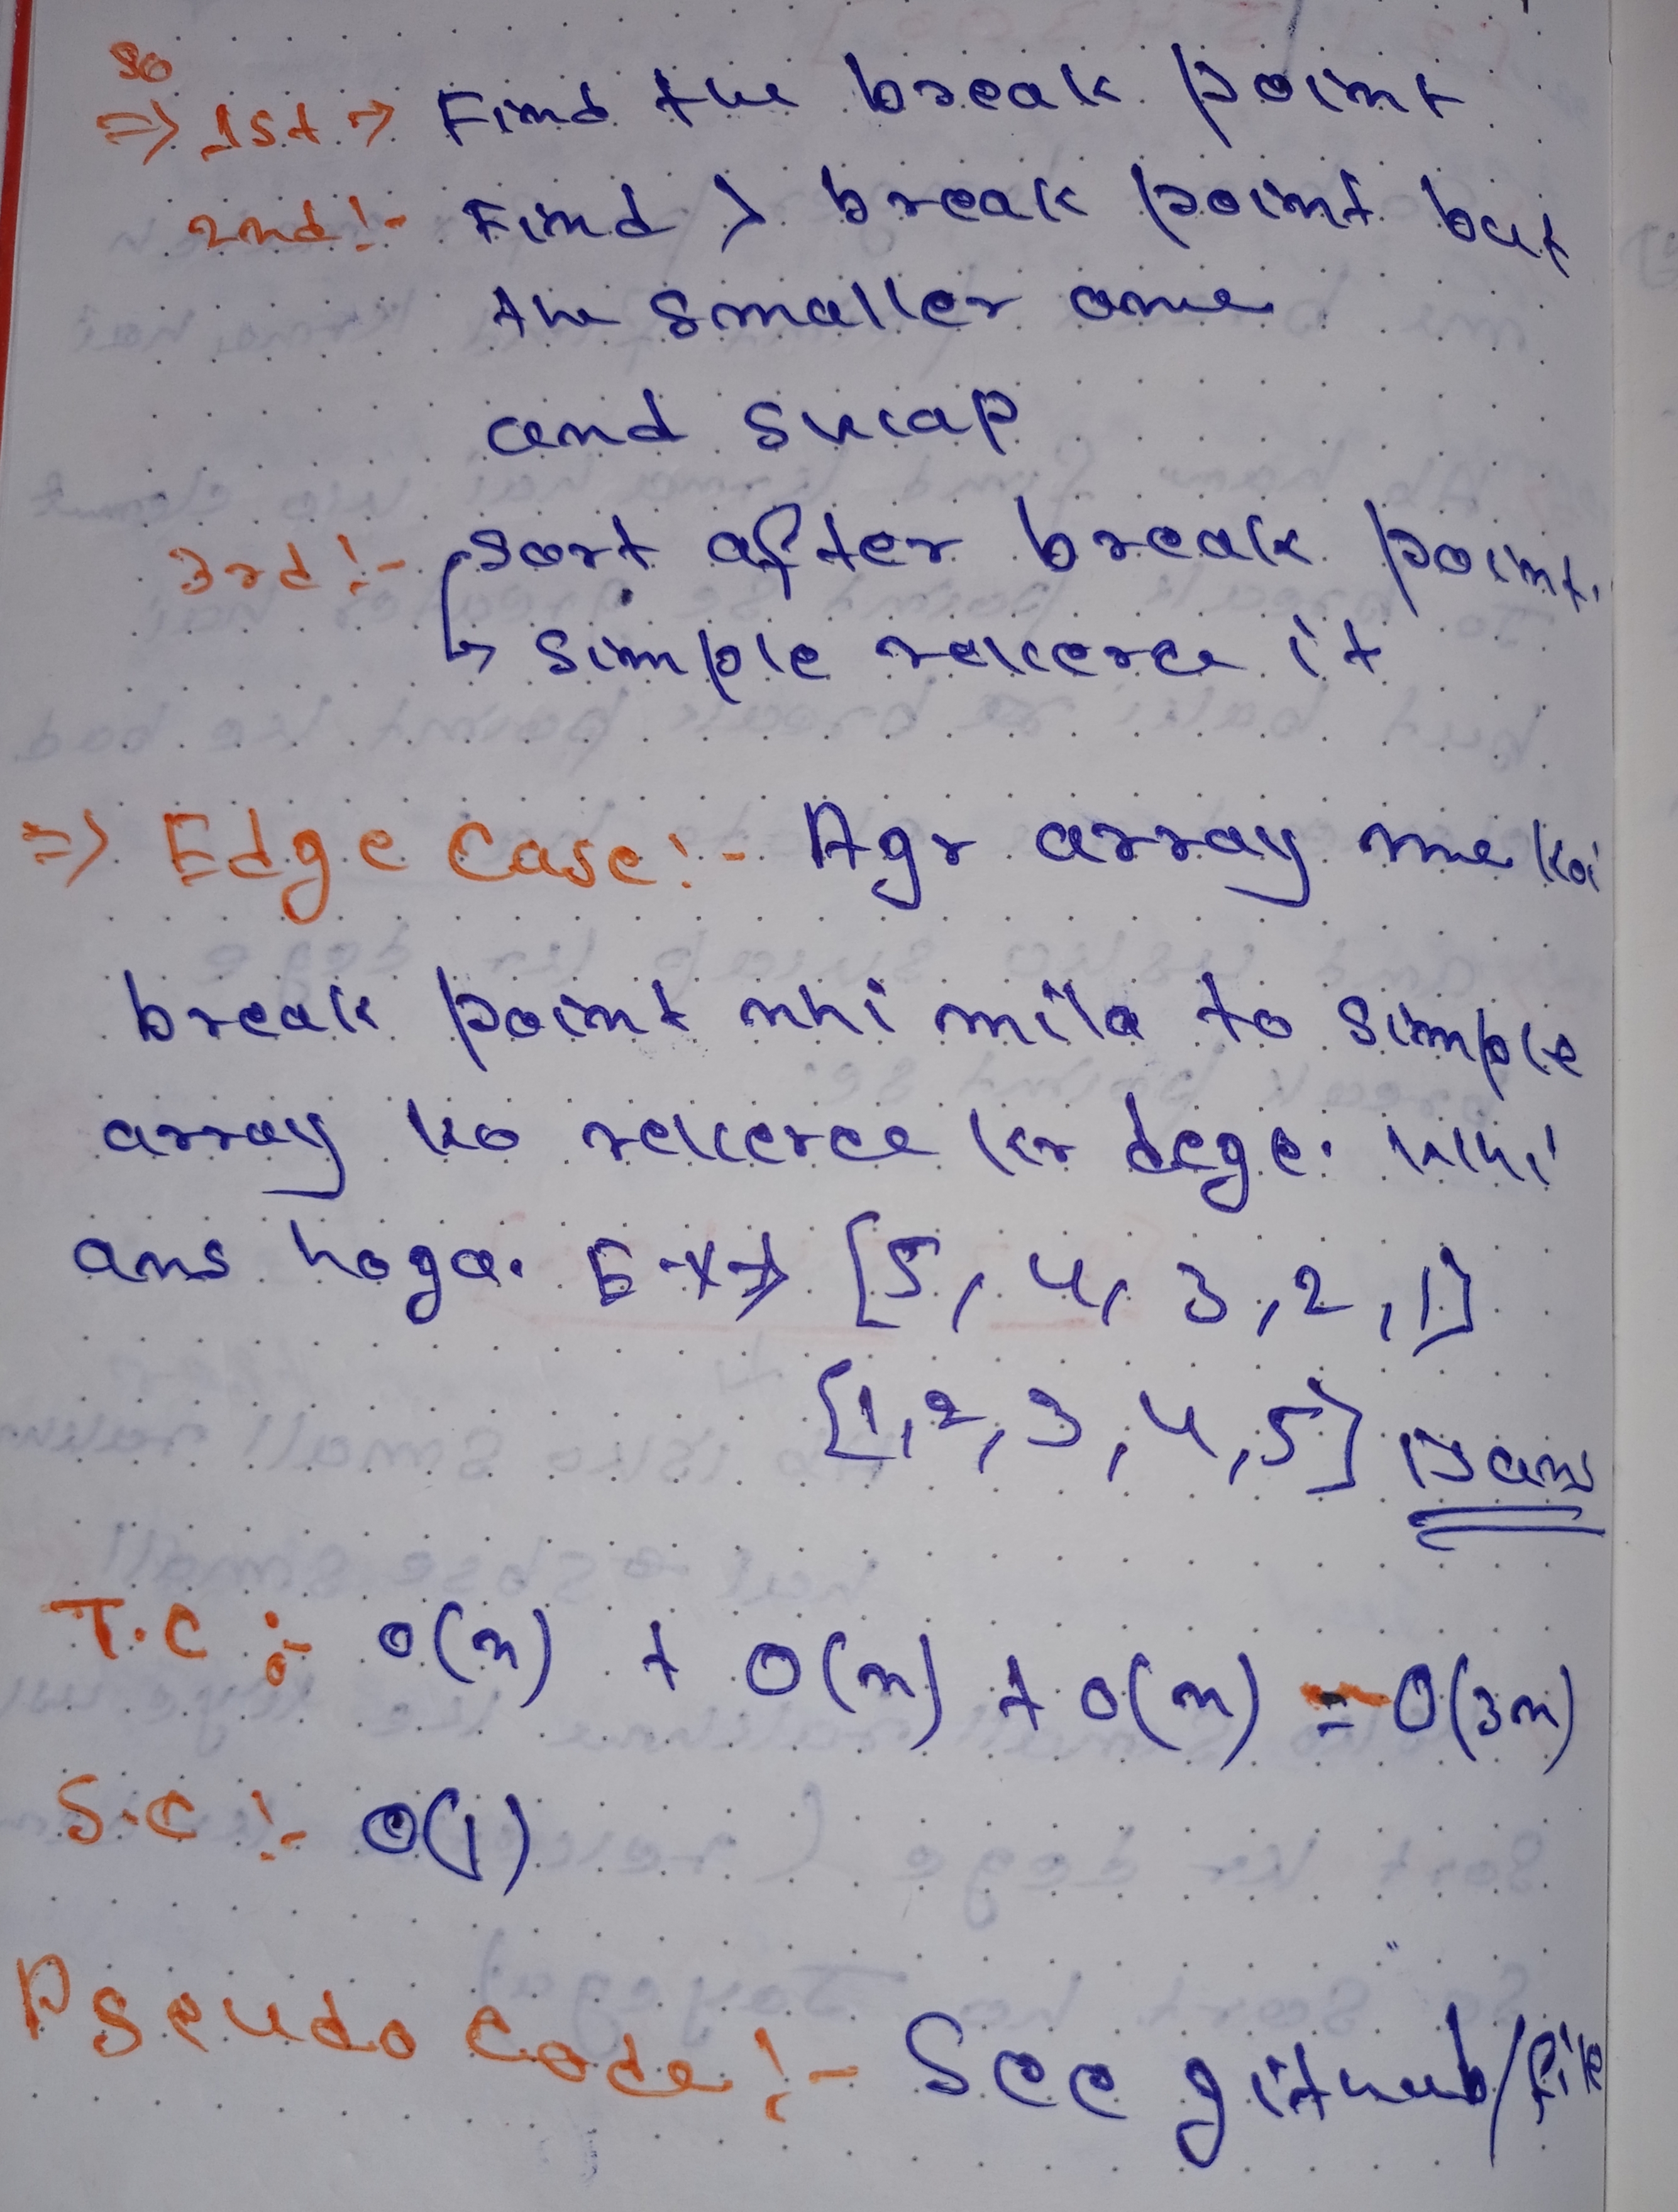 so
=> 1st -> Find the break point
2nd :- Find > break point but
the smaller one
and swap
3rd :- sort after break point.
↳ simple reverse it
=> Edge Case :- Agr array me koi
break point nhi mila to simple
array ko reverse kr dege. Whi
ans hoga. Ex -> [5, 4, 3, 2, 1]
[1, 2, 3, 4, 5] is ans
T.C :- O(n) + O(n) + O(n) = O(3n)
S.C :- O(1)
Pseudo Code :- See github/file